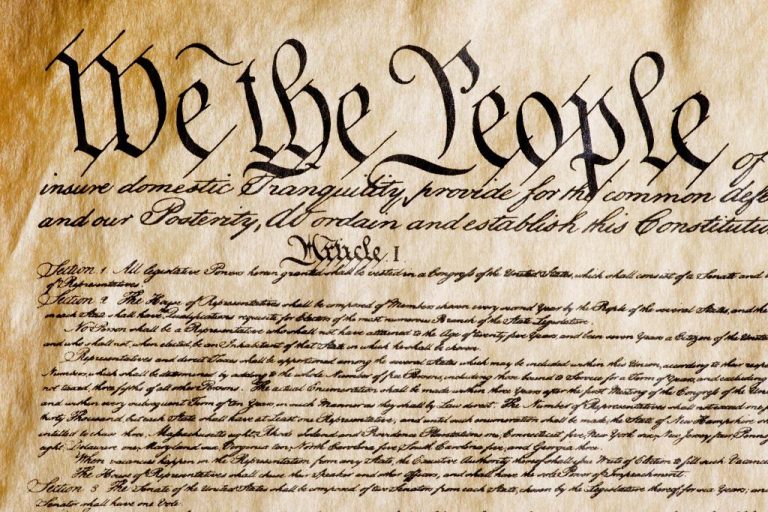 We the People of
insure domestic Tranquility, provide for the common defe
and our Posterity, do ordain and establish this Constitutio
Article I
Section 1 All legislative Powers herein granted shall be vested in a Congress of the United States, which shall consist of a Senate and
of Representatives.
Section 2 The House of Representatives shall be composed of Members chosen every second Year by the People of the several States, and the
in each State shall have the Qualifications requisite for Electors of the most numerous Branch of the State Legislature.
No Person shall be a Representative who shall not have attained to the Age of twenty five Years, and been seven Years a Citizen of the United
and who shall not, when elected, be an Inhabitant of that State in which he shall be chosen.
Representatives and direct Taxes shall be apportioned among the several States which may be included within this Union, according to their respec
Numbers, which shall be determined by adding to the whole Number of free Persons, including those bound to Service for a Term of Years, and excluding
not taxed, three fifths of all other Persons. The actual Enumeration shall be made within three Years after the first Meeting of the Congress of the Unit
and within every subsequent Term of ten Years, in such Manner as they shall by Law direct. The Number of Representatives shall not exceed one
thirty Thousand, but each State shall have at Least one Representative; and until such enumeration shall be made, the State of New Hampshire
entitled to chuse three, Massachusetts eight, Rhode Island and Providence Plantations one, Connecticut five, New York six, New Jersey four, Penns
eight, Delaware one, Maryland six, Virginia ten, North Carolina five, South Carolina five, and Georgia three.
When vacancies happen in the Representation from any State, the Executive Authority thereof shall issue Writs of Election to fill such Vacanc
The House of Representatives shall chuse their Speaker and other Officers; and shall have the sole Power of Impeachment.
Section 3 The Senate of the United States shall be composed of two Senators from each State, chosen by the Legislature thereof, for six Years; and
Senator shall have one Vote.